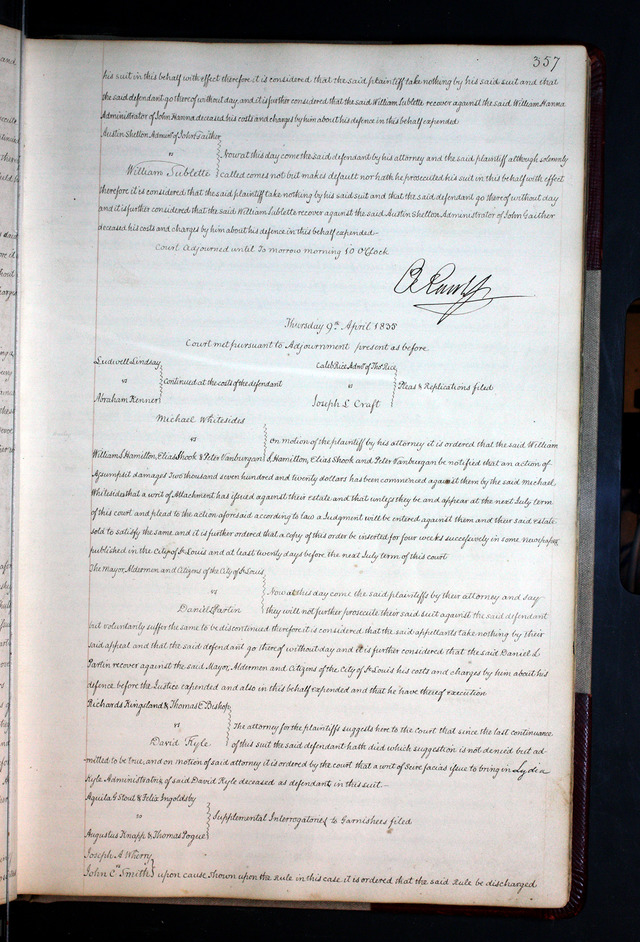 357
his suit in this behalf with effect therefore it is considered that the said plaintiff take nothing by his said suit and that
the said defendant go thereof without day, and it is further considered that the said William Sublette recover against the said William Hanna
Administrator of John Hanna deceased his costs and charges by him about his defence in this behalf expended
Austin Shelton Admr of John Gaither
vs
William Sublette
Now at this day come the said defendant by his attorney and the said plaintiff although solemnly
called comes not but makes default nor hath he prosecuted his suit in this behalf with effect
therefore it is considered that the said plaintiff take nothing by his said suit and that the said defendant go thereof without day
and it is further considered that the said William Sublette recover against the said Austin Shelton Administrator of John Gaither
deceased his costs and charges by him about his defence in this behalf expended—
Court Adjourned until To morrow morning 10 O'Clock
Thursday 9th April 1835
Court met pursuant to Adjournment present as before
Ludwell Lindsay
vs
Abraham Kenner
continued at the costs of the defendant
Caleb Rice Admr of Thos Rice
vs
Joseph L Craft
Pleas & Replications filed
Michael Whitesides
vs
William S Hamilton, Elias Shook & Peter Vanburgan
on motion of the plaintiff by his attorney it is ordered that the said William
S Hamilton, Elias Shook and Peter Vanburgan be notified that an action of
Assumpsit damages Two thousand seven hundred and twenty dollars has been commenced against them by the said Michael
Whitesides that a writ of Attachment has issued against their estate and that unless they be and appear at the next July term
of this court and plead to the action aforesaid according to law a Judgment will be entered against them and their said estate
sold to satisfy the same and it is further ordered that a copy of this order be inserted for four weeks successively in some newspaper
published in the City of St Louis and at least twenty days before the next July term of this court
The Mayor, Aldermen and Citizens of the City of St Louis
vs
Daniel Partin
Now at this day come the said plaintiffs by their attorney and say
they will not further prosecute their said suit against the said defendant
but voluntarily suffer the same to be discontinued therefore it is considered that the said appellants take nothing by their
said appeal and that the said defendant go thereof without day and it is further considered that the said Daniel L
Partin recover against the said Mayor, Aldermen and Citizens of the City of St Louis his costs and charges by him about his
defence before the Justice expended and also in this behalf expended and that he have thereof execution
Richards Kingsland & Thomas E Bishop
vs
David Kyle
The attorney for the plaintiffs suggests here to the court that since the last continuance
of this suit the said defendant hath died which suggestion is not denied but ad-
-mitted to be true, and on motion of said attorney it is ordered by the court that a writ of Scire facias issue to bring in Lydia
Kyle Administratrix of said David Kyle deceased as defendant in this suit.—
Aquila G Stout & Felix Ingoldsby
vs
Augustus Knapp & Thomas Pogue
Supplemental Interrogatories to Garnishees filed
Joseph A Wherry
John C Smith
upon cause shown upon the Rule in this case it is ordered that the said Rule be discharged